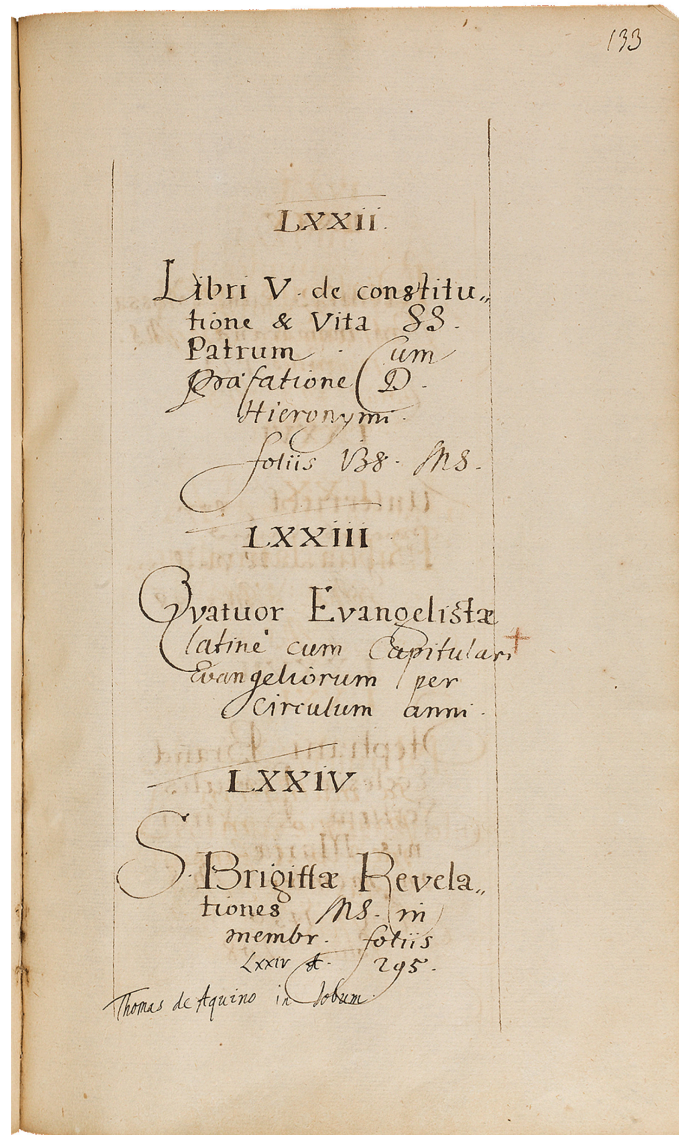 133
LXXII.
Libri V. de constitu„
tione & Vita SS.
Patrum. Cum
Præfatione D.
Hieronymi.
foliis 138. MS.
LXXIII
Qvatuor Evangelistæ
latinè cum Capitulari †
Evangeliorum per
circulum anni.
LXXIV
S. Brigittæ Revela„
tiones MS. in
membr. foliis
LXXIV 295.
Thomas de Aquino in Jobum.